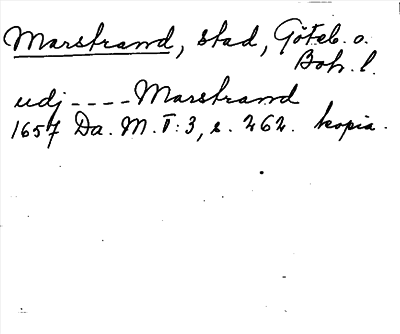 Marstrand, stad, Göteb. o.
Boh. l.
udj ---- Marstrand
1657 Da. M. I: 3, s. 262. kopia.